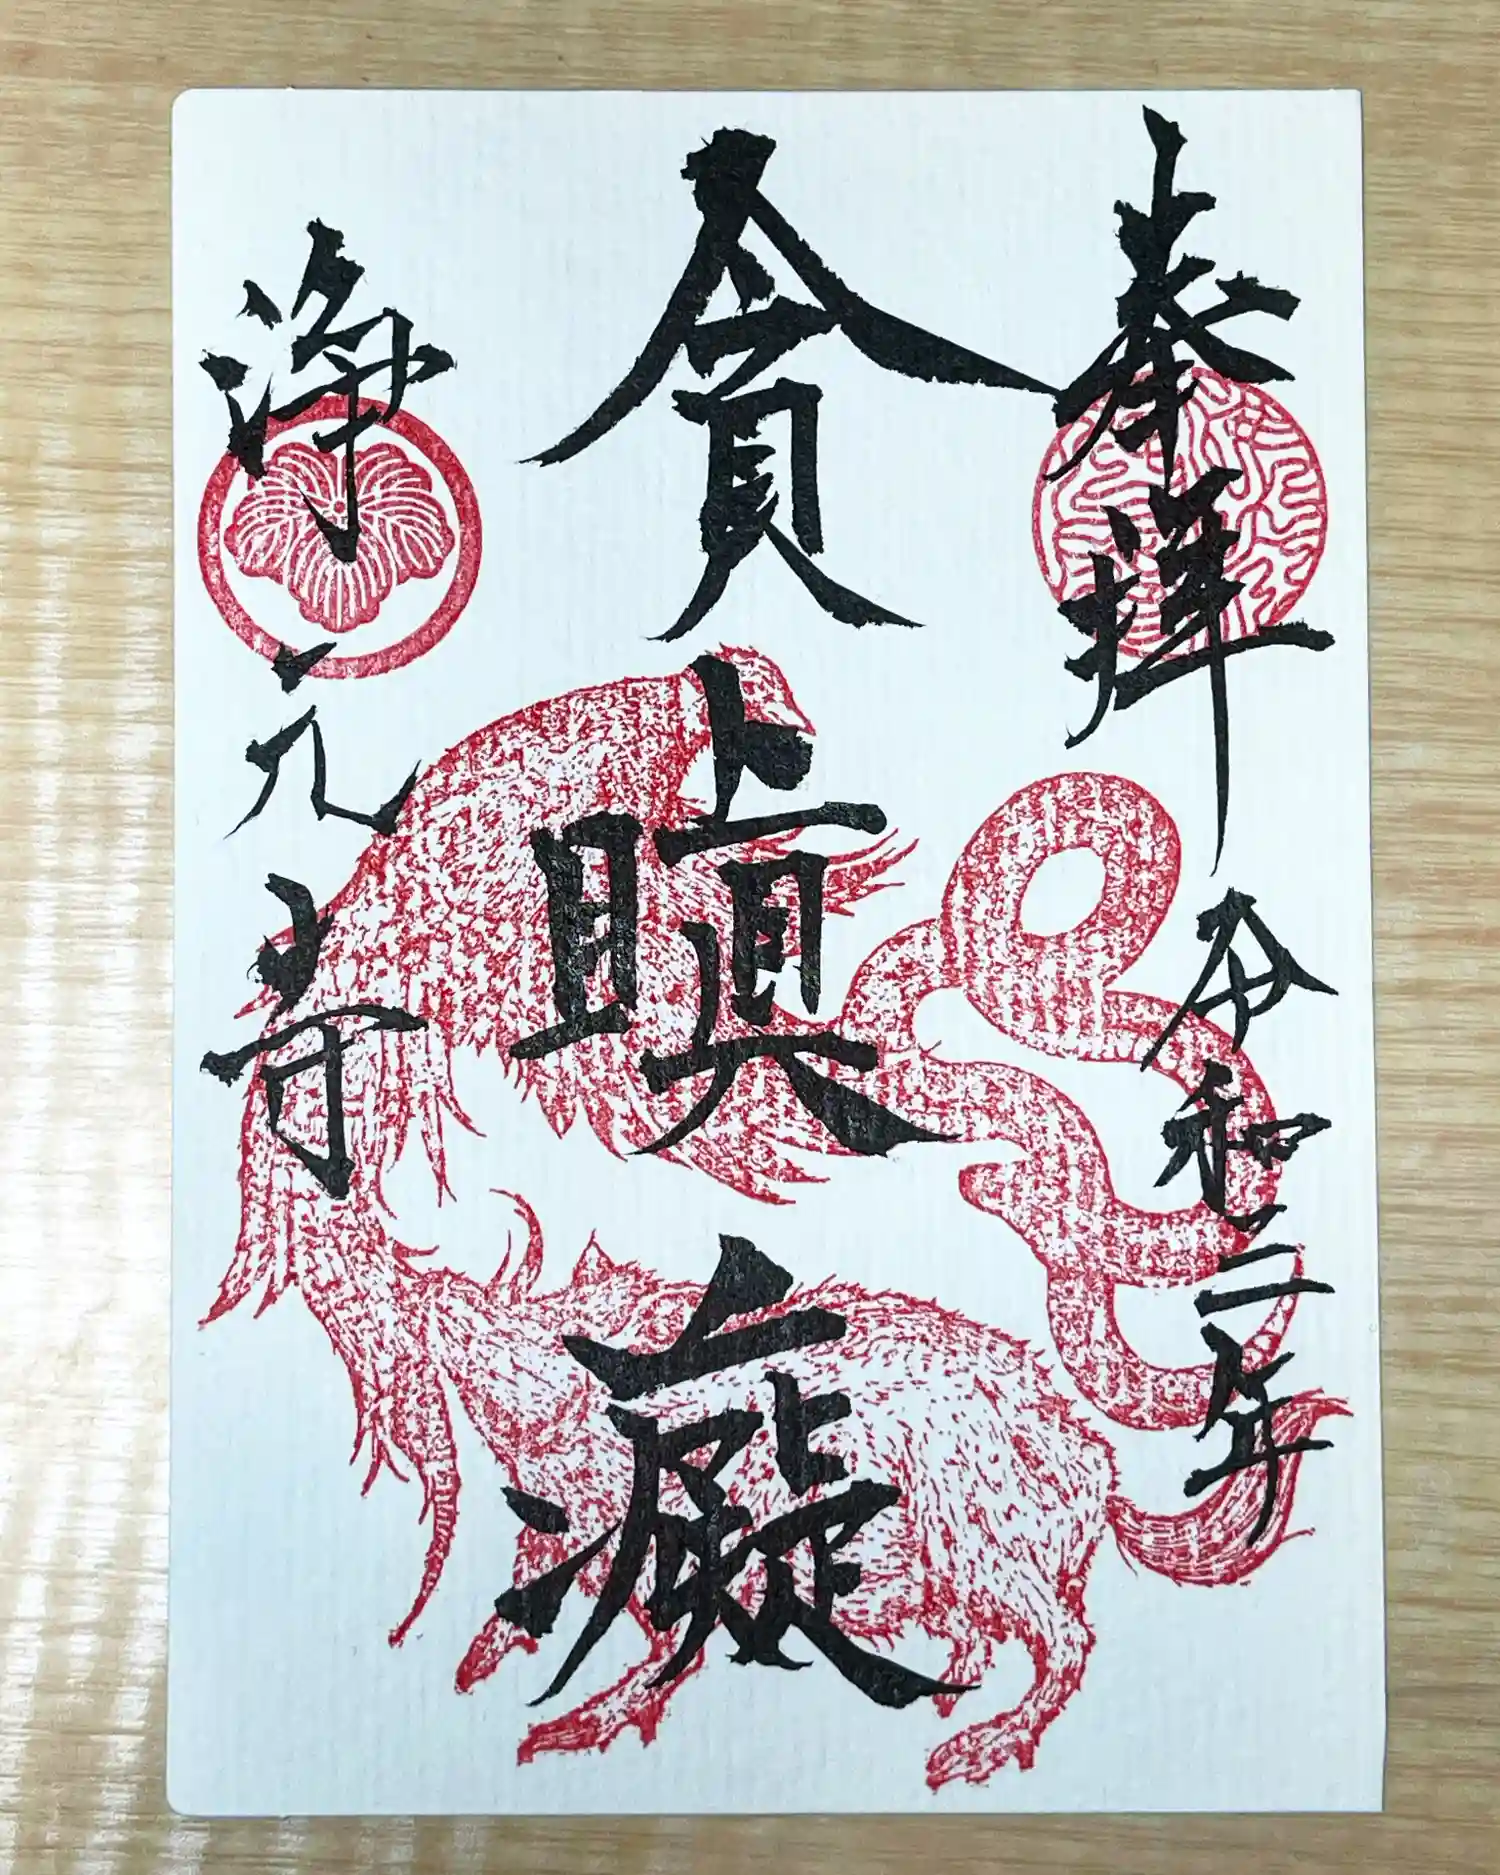 奉拝
令和三年
貪
瞋
癡
浄元寺